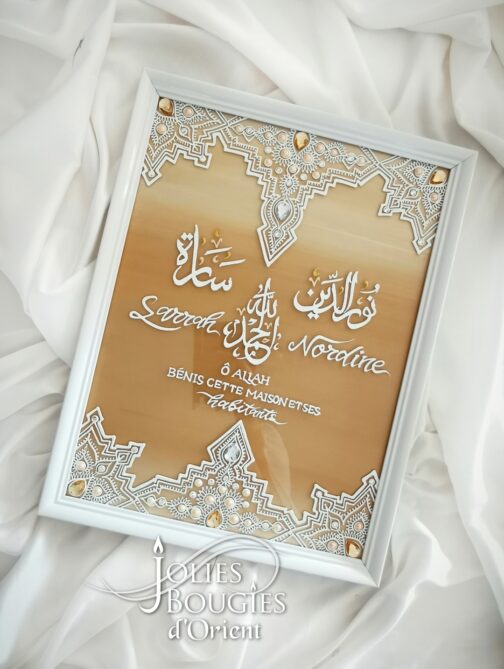 سارة
نُور الدِّين
الحمد لله
Sarrah
Nordine
Ô ALLAH
BÉNIS CETTE MAISON ET SES
habitants
JOLIES
BOUGIES
d'Orient